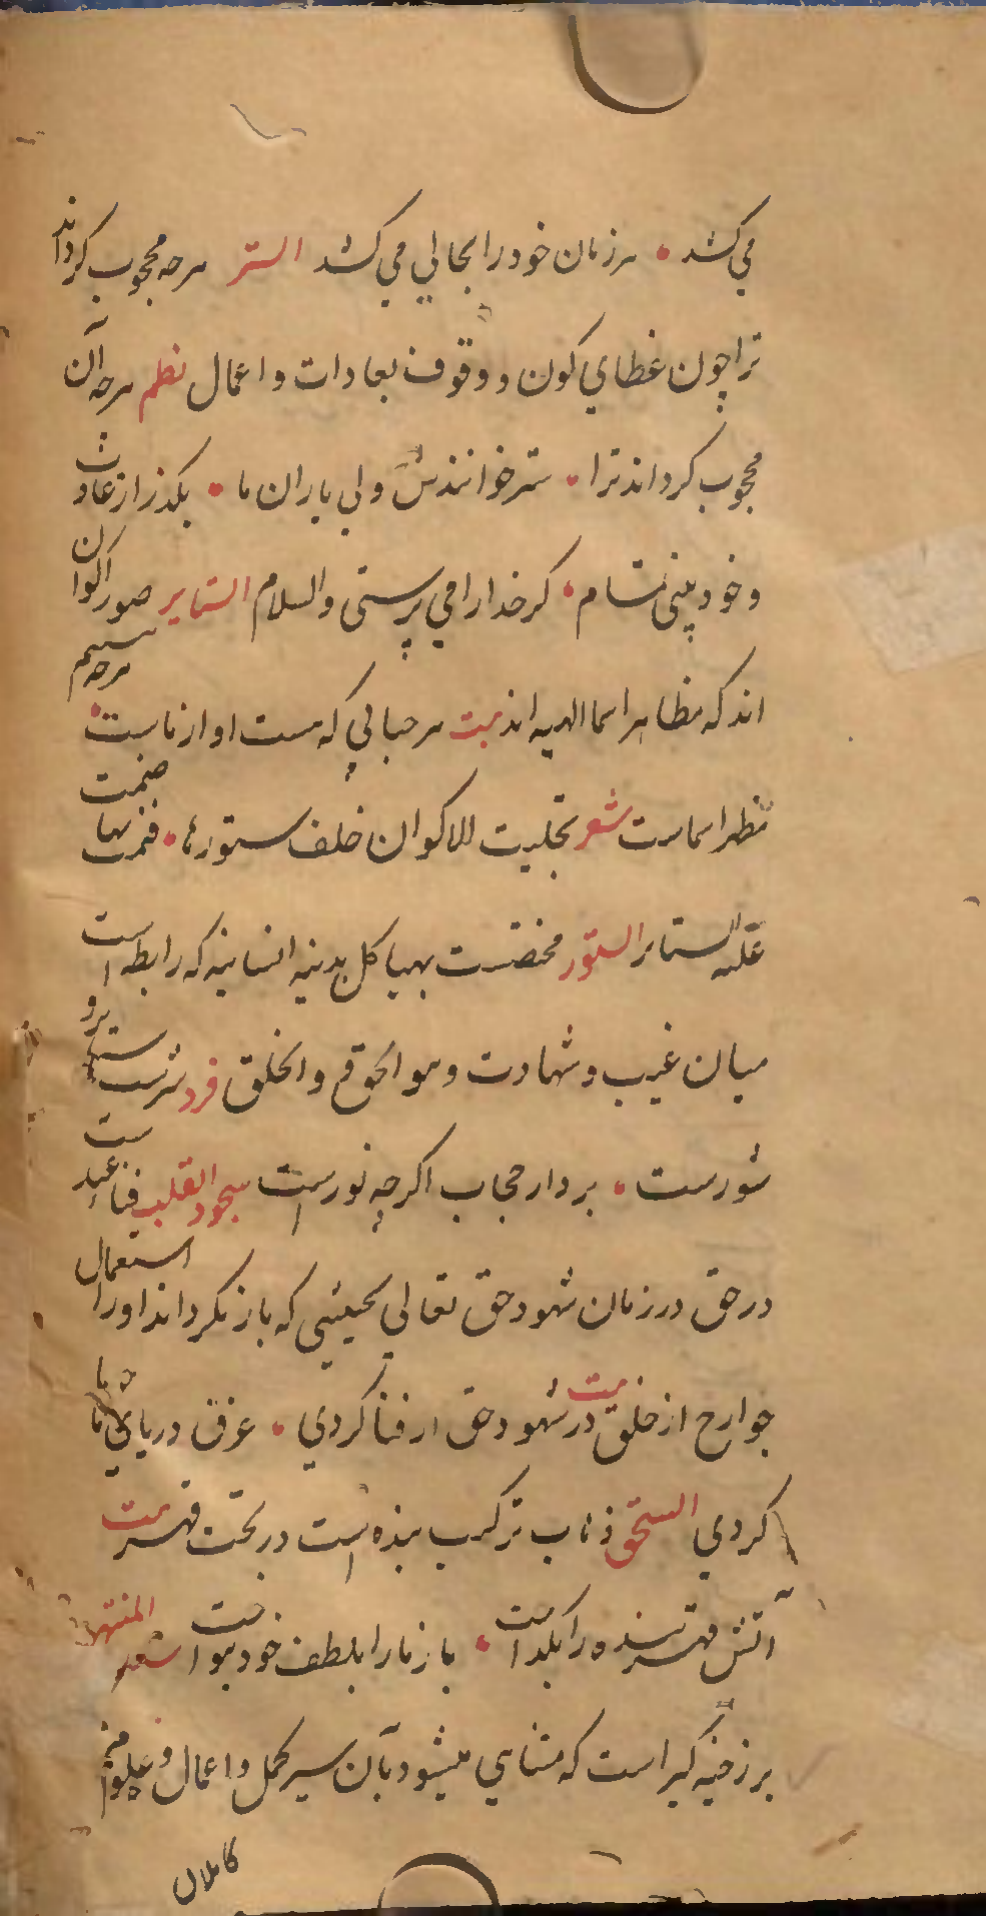 می کشد • هر زمان خود را بجایی می کشد الستر هرچه محجوب کرداند
ترا چون غطای کون و وقوف بعادات و اعمال نظم هرچه آن
محجوب کرداند ترا • ستر خوانندش ولی یاران ما • بکذر از عادات
و خود بینی تمام • کر خدا را می پرستی والسلام الستایر صور اکوان
اند که مظاهر اسما الهیه اند بیت هر حجابی که هست او از ماست • هرچه بینیم
مظهر اسماست شعر تجلیت للاکوان خلف ستورها • فنمت بما ضمت
علیه الستایر الستور مختصست بهیاکل بدنیه انسانیه که رابطه است
میان غیب و شهادت و هو الحق و الخلق فرد
شورست • بردار حجاب اکرچه نور است سجود القلب فناء عبد است
در حق در زمان شهود حق تعالی بحیثیتی که باز نکرداند او را استعمال
جوارح از خلق بیت در شهود حق ار فنا کردی • غرق دریای ما
کردی السحق ذهاب ترکیب بنده است در تحت قهر بیت
آتش قهر بنده را بکداخت • باز ما را بلطف خود بنواخت المنتهی
برزخیه کبر است که متناهی میشود بآن سیر کمل و اعمال و علوم
کاملان